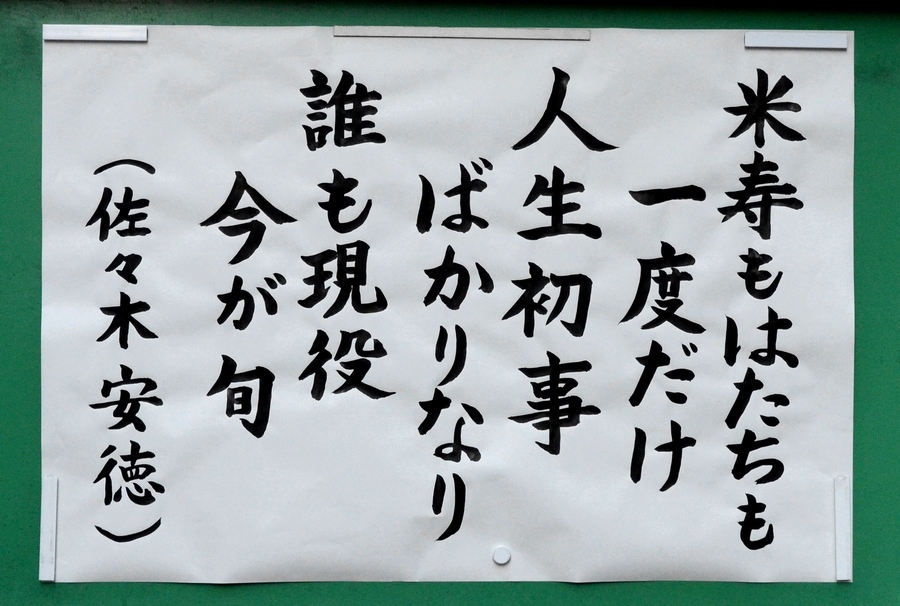 米寿もはたちも
一度だけ
人生初事
ばかりなり
誰も現役
今が旬
（佐々木安徳）